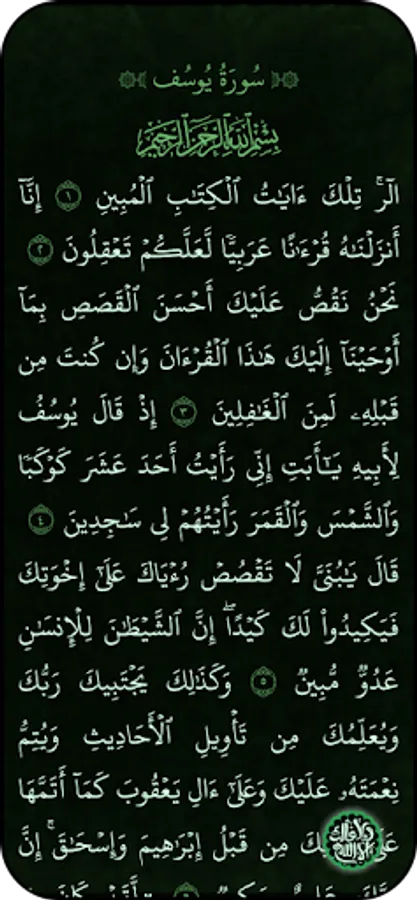 سُورَةُ يُوسُف
بِسْمِ ٱللَّهِ ٱلرَّحْمَٰنِ ٱلرَّحِيمِ
الٓرۚ تِلْكَ ءَايَٰتُ ٱلْكِتَٰبِ ٱلْمُبِينِ ١ إِنَّآ
أَنزَلْنَٰهُ قُرْءَٰنًا عَرَبِيًّا لَّعَلَّكُمْ تَعْقِلُونَ ٢
نَحْنُ نَقُصُّ عَلَيْكَ أَحْسَنَ ٱلْقَصَصِ بِمَآ
أَوْحَيْنَآ إِلَيْكَ هَٰذَا ٱلْقُرْءَانَ وَإِن كُنتَ مِن
قَبْلِهِۦ لَمِنَ ٱلْغَٰفِلِينَ ٣ إِذْ قَالَ يُوسُفُ
لِأَبِيهِ يَٰٓأَبَتِ إِنِّي رَأَيْتُ أَحَدَ عَشَرَ كَوْكَبًا
وَٱلشَّمْسَ وَٱلْقَمَرَ رَأَيْتُهُمْ لِي سَٰجِدِينَ ٤
قَالَ يَٰبُنَيَّ لَا تَقْصُصْ رُءْيَاكَ عَلَىٰٓ إِخْوَتِكَ
فَيَكِيدُوا۟ لَكَ كَيْدًاۖ إِنَّ ٱلشَّيْطَٰنَ لِلْإِنسَٰنِ
عَدُوٌّ مُّبِينٌ ٥ وَكَذَٰلِكَ يَجْتَبِيكَ رَبُّكَ
وَيُعَلِّمُكَ مِن تَأْوِيلِ ٱلْأَحَادِيثِ وَيُتِمُّ
نِعْمَتَهُۥ عَلَيْكَ وَعَلَىٰٓ ءَالِ يَعْقُوبَ كَمَآ أَتَمَّهَا
مِن قَبْلُ إِبْرَٰهِيمَ وَإِسْحَٰقَۚ إِنَّ